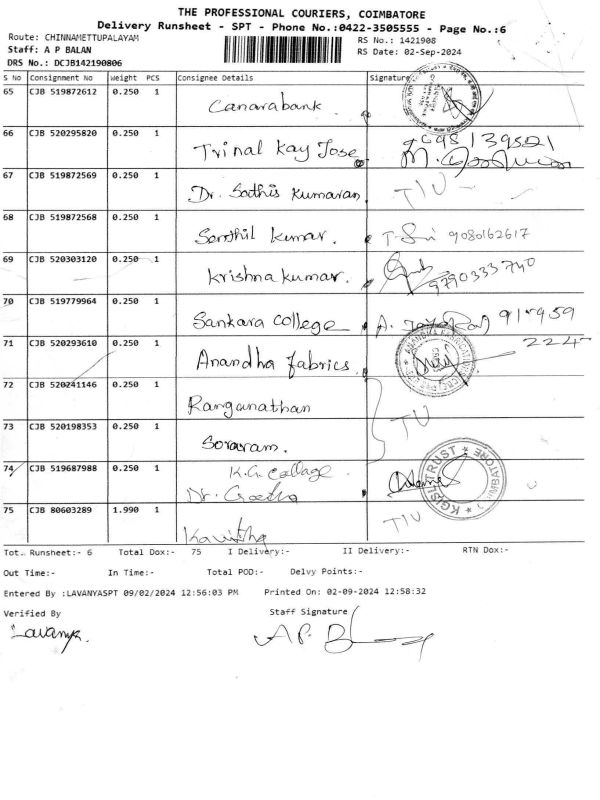 THE PROFESSIONAL COURIERS, COIMBATORE
Delivery Runsheet - SPT - Phone No.:0422-3505555 - Page No.:6
Route: CHINNAMETTUPALAYAM
RS No.: 1421908
Staff: A P BALAN
RS Date: 02-Sep-2024
DRS No.: DCJB142190806
S No Consignment No Weight PCS Consignee Details Signature
65 CJB 519872612 0.250 1 Canarabank
66 CJB 520295820 0.250 1 Trinal Kay Jose
67 CJB 519872569 0.250 1 Dr. Sathis Kumaran TIU
68 CJB 519872568 0.250 1 Senthil Kumar. 9080162617
69 CJB 520303120 0.250 1 Krishna kumar. 9790333740
70 CJB 519779964 0.250 1 Sankara College A.
71 CJB 520293610 0.250 1 Anandha fabrics
72 CJB 520241146 0.250 1 Ranganathan
TU
73 CJB 520198353 0.250 1
74 CJB 519687988 0.250 1 K.G. Collage
Dr. Geetha
KGISL TRUST COIMBATORE
75 CJB 80603289 1.990 1 Kavitha TIU
Tot. Runsheet:- 6 Total Dox:- 75 I Delivery:- II Delivery:- RTN Dox:-
Out Time:- In Time:- Total POD:- Delvy Points:-
Entered By :LAVANYASPT 09/02/2024 12:56:03 PM Printed On: 02-09-2024 12:58:32
Verified By Staff Signature
Lavanya. A P. B